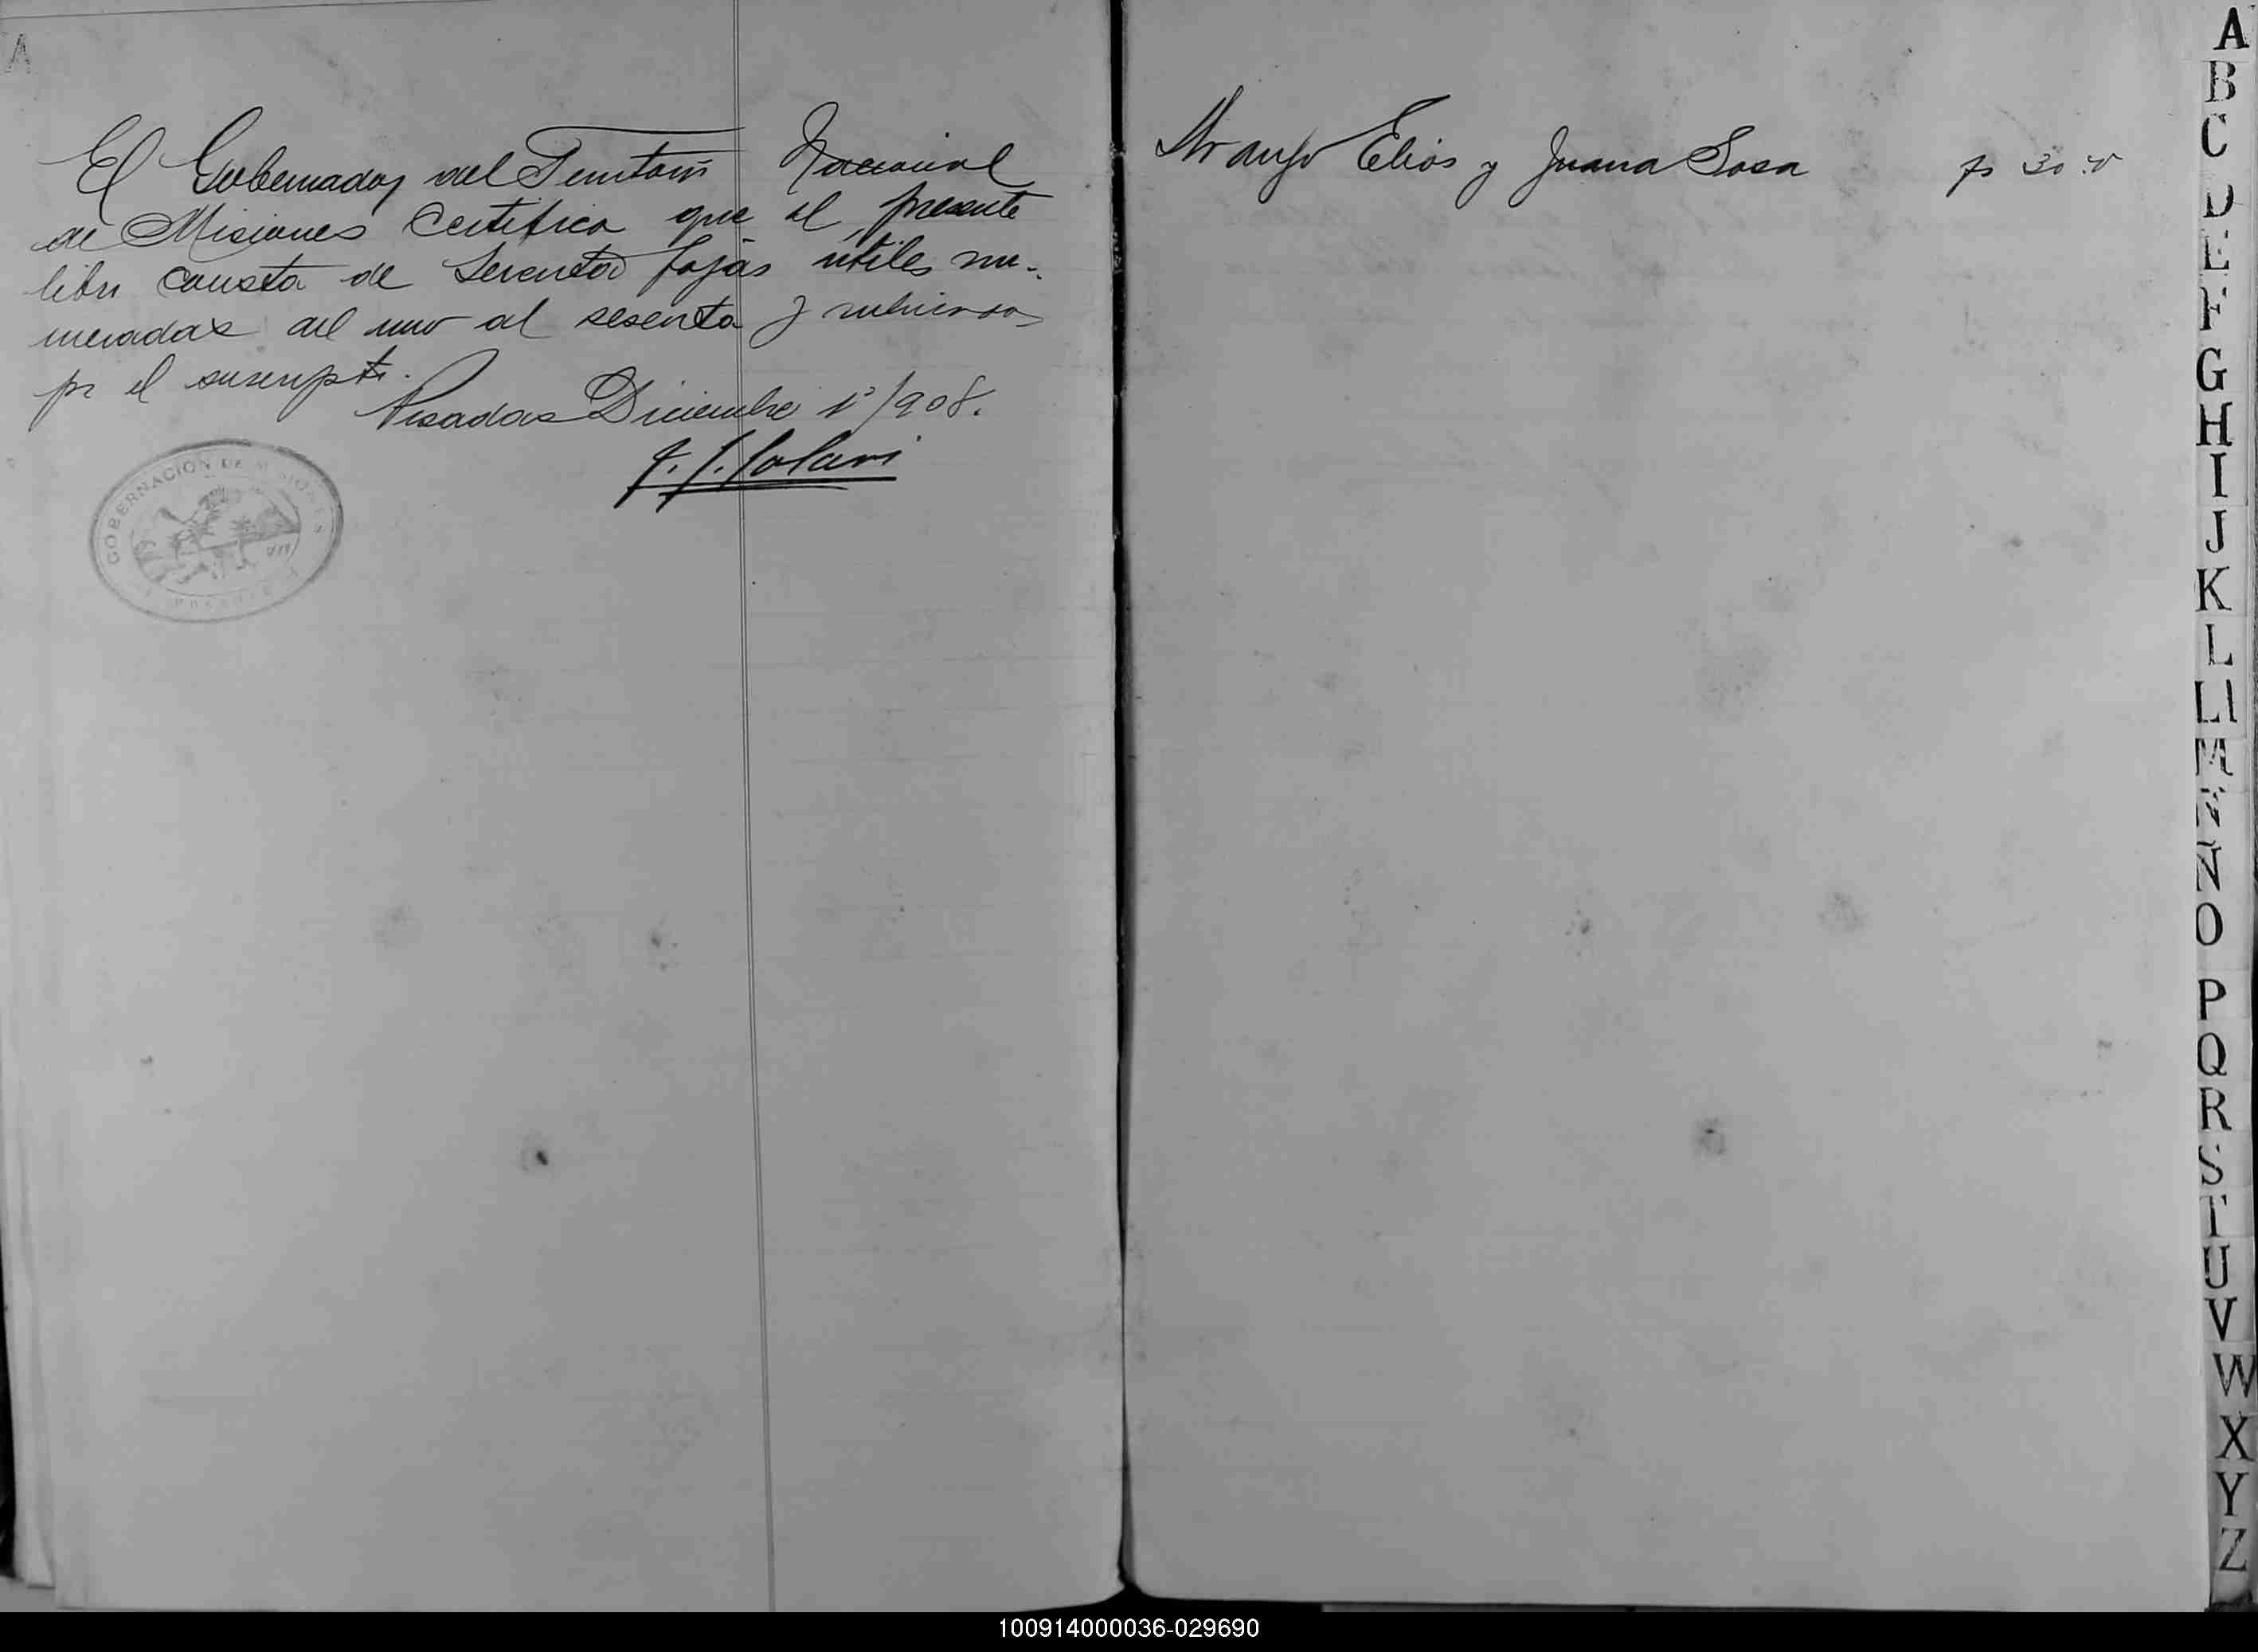 A
El Gobernador del Territorio Nacional
de Misiones Certifica que el presente
libro consta de Sesenta fojas útiles nu-
meradas del uno al sesenta y rubricadas
pr el suscripto.
Posadas Diciembre 1º/908.
J. J. Solari
GOBERNACION DE MISIONES
POSADAS
Araujo Elias y Juana Sosa fs 30 v
A
B
C
D
E
F
G
H
I
J
K
L
Ll
M
N
O
P
Q
R
S
T
U
V
W
X
Y
Z
100914000036-029690